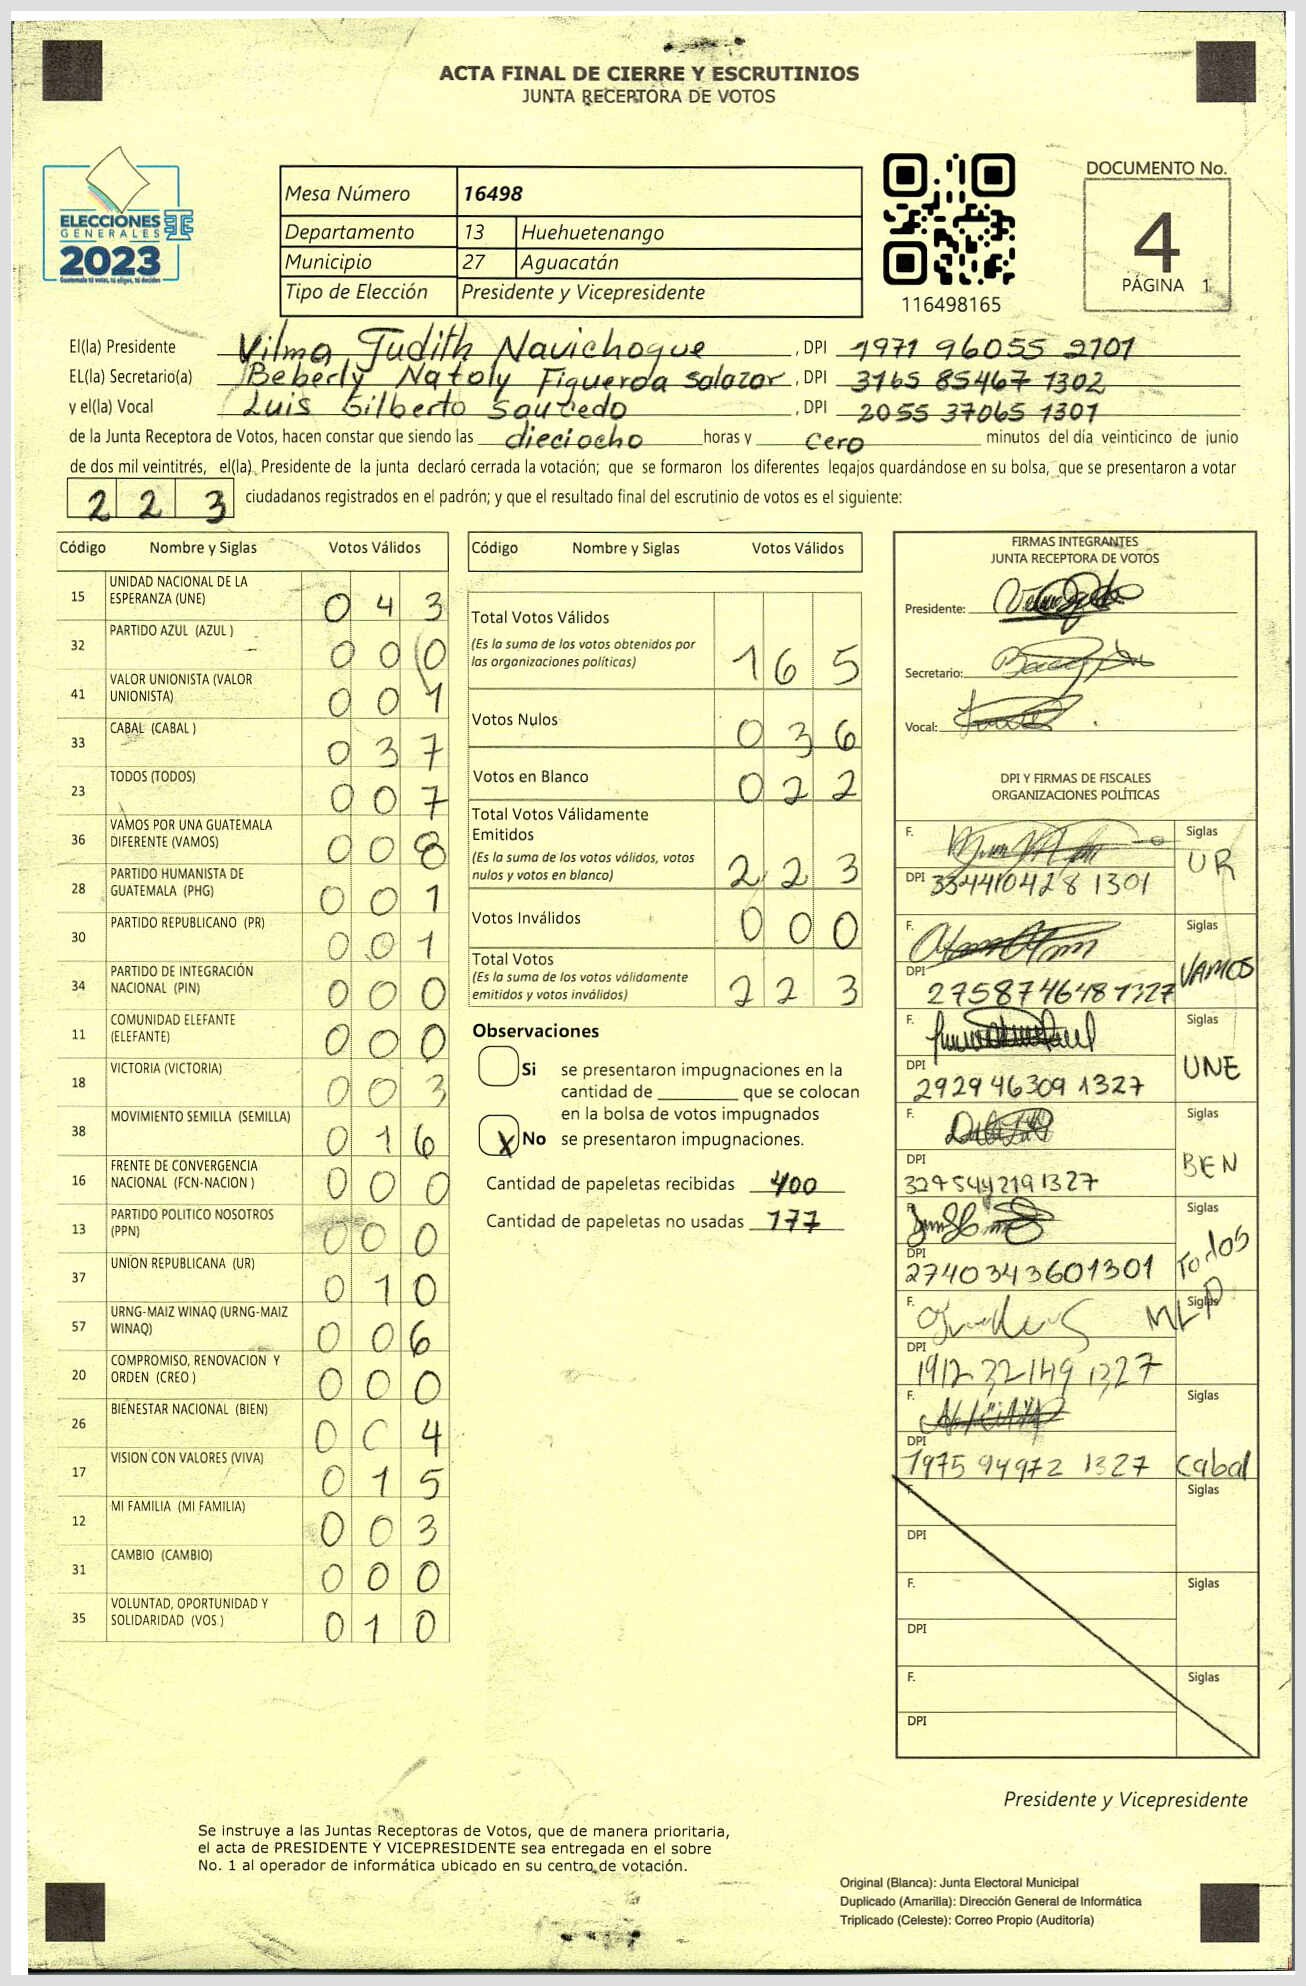 ACTA FINAL DE CIERRE Y ESCRUTINIOS
JUNTA RECEPTORA DE VOTOS
ELECCIONES
GENERALES
2023
Guatemala tú votas, tú eliges, tú decides
Mesa Número 16498
Departamento 13 Huehuetenango
Municipio 27 Aguacatán
Tipo de Elección Presidente y Vicepresidente
116498165
DOCUMENTO No.
4
PÁGINA 1
El(la) Presidente Vilma Judith Navichoque, DPI 1971 96055 2101
EL(la) Secretario(a) Beberly Nataly Figueroa Salazar, DPI 3165 85467 1302
y el(la) Vocal Luis Gilberto Saucedo, DPI 2055 37065 1301
de la Junta Receptora de Votos, hacen constar que siendo las dieciocho horas y cero minutos del día veinticinco de junio
de dos mil veintitrés, el(la) Presidente de la junta declaró cerrada la votación; que se formaron los diferentes legajos guardándose en su bolsa, que se presentaron a votar
223 ciudadanos registrados en el padrón; y que el resultado final del escrutinio de votos es el siguiente:
Código Nombre y Siglas Votos Válidos
15 UNIDAD NACIONAL DE LA ESPERANZA (UNE) 043
32 PARTIDO AZUL (AZUL ) 000
41 VALOR UNIONISTA (VALOR UNIONISTA) 001
33 CABAL (CABAL ) 037
23 TODOS (TODOS) 007
36 VAMOS POR UNA GUATEMALA DIFERENTE (VAMOS) 008
28 PARTIDO HUMANISTA DE GUATEMALA (PHG) 001
30 PARTIDO REPUBLICANO (PR) 001
34 PARTIDO DE INTEGRACIÓN NACIONAL (PIN) 000
11 COMUNIDAD ELEFANTE (ELEFANTE) 000
18 VICTORIA (VICTORIA) 003
38 MOVIMIENTO SEMILLA (SEMILLA) 016
16 FRENTE DE CONVERGENCIA NACIONAL (FCN-NACION ) 000
13 PARTIDO POLITICO NOSOTROS (PPN) 000
37 UNION REPUBLICANA (UR) 010
57 URNG-MAIZ WINAQ (URNG-MAIZ WINAQ) 006
20 COMPROMISO, RENOVACION Y ORDEN (CREO ) 000
26 BIENESTAR NACIONAL (BIEN) 004
17 VISION CON VALORES (VIVA) 015
12 MI FAMILIA (MI FAMILIA) 003
31 CAMBIO (CAMBIO) 000
35 VOLUNTAD, OPORTUNIDAD Y SOLIDARIDAD (VOS ) 010
Código Nombre y Siglas Votos Válidos
Total Votos Válidos
(Es la suma de los votos obtenidos por las organizaciones políticas) 165
Votos Nulos 036
Votos en Blanco 022
Total Votos Válidamente Emitidos
(Es la suma de los votos válidos, votos nulos y votos en blanco) 223
Votos Inválidos 000
Total Votos
(Es la suma de los votos válidamente emitidos y votos inválidos) 223
Observaciones
Si se presentaron impugnaciones en la
cantidad de ________ que se colocan
en la bolsa de votos impugnados
X No se presentaron impugnaciones.
Cantidad de papeletas recibidas 400
Cantidad de papeletas no usadas 177
FIRMAS INTEGRANTES
JUNTA RECEPTORA DE VOTOS
Presidente:
Secretario:
Vocal:
DPI Y FIRMAS DE FISCALES
ORGANIZACIONES POLÍTICAS
F. Siglas UR
DPI 334410428 1301
F. Siglas VAMOS
DPI 275874648 1327
F. Siglas UNE
DPI 2929 46309 1327
F. Siglas BEN
DPI 329544219 1327
F. Siglas Todos
DPI 2740343601301
F. Siglas MLP
DPI 1912 32149 1327
F. Siglas Cabal
DPI 1975 94972 1327
F. Siglas
DPI
F. Siglas
DPI
F. Siglas
DPI
Presidente y Vicepresidente
Se instruye a las Juntas Receptoras de Votos, que de manera prioritaria,
el acta de PRESIDENTE Y VICEPRESIDENTE sea entregada en el sobre
No. 1 al operador de informática ubicado en su centro de votación.
Original (Blanca): Junta Electoral Municipal
Duplicado (Amarilla): Dirección General de Informática
Triplicado (Celeste): Correo Propio (Auditoría)